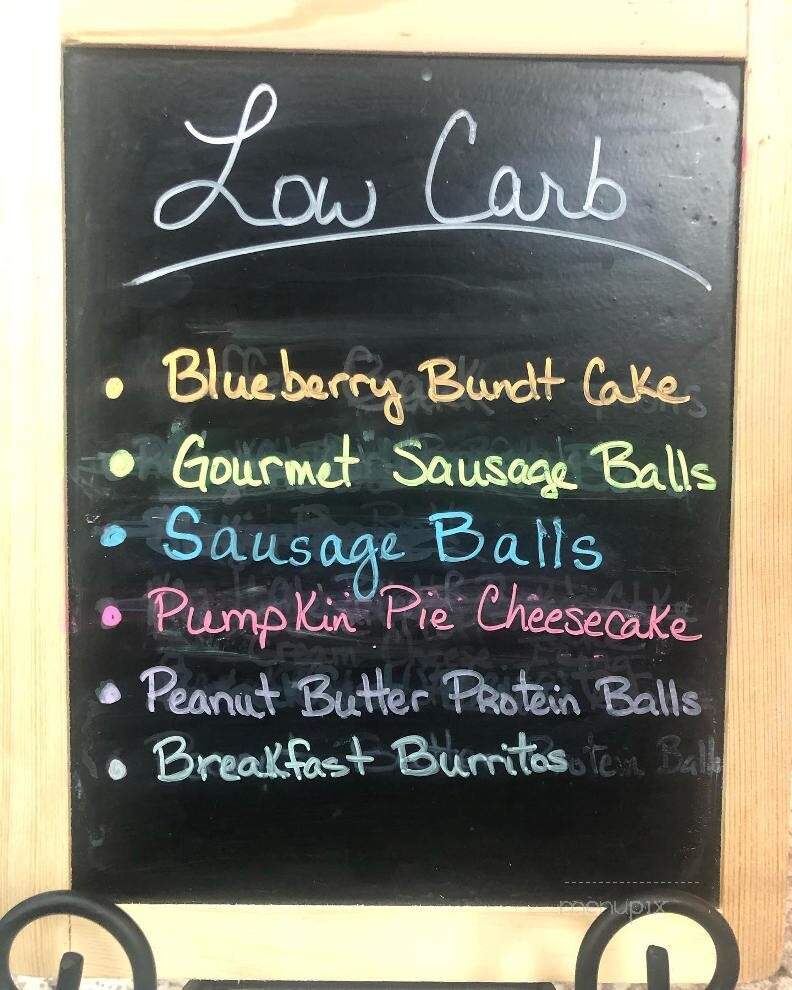 Low Carb
• Blueberry Bundt Cake
• Gourmet Sausage Balls
• Sausage Balls
• Pumpkin Pie Cheesecake
• Peanut Butter Protein Balls
• Breakfast Burritos
menupix